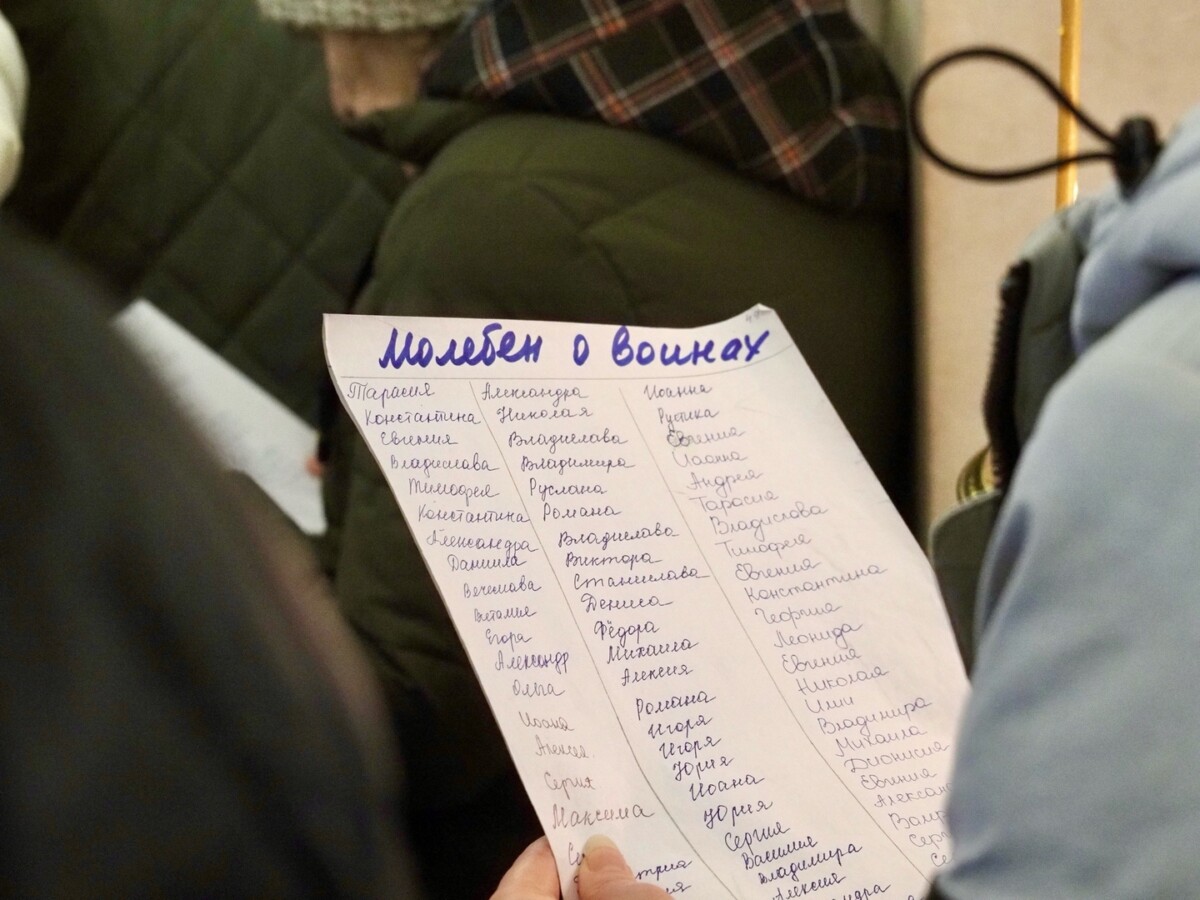 Молебен о воинах
Тарасия
Константина
Евгения
Владислава
Тимофея
Константина
Александра
Даниила
Вечеслава
Виталия
Егора
Александр
Ольга
Иоана
Алексея.
Сергия
Максима
Александра
Николая
Владислава
Владимира
Руслана
Романа
Владислава
Виктора
Станислава
Дениса
Фёдора
Михаила
Алексия
Романа
Игоря
Игоря
Юрия
Иоана
Юрия
Сергия
Василия
Владимира
Алексия
Иоанна
Рустика
Евгения
Иоанна
Андрея
Тарасия
Владислава
Тимофея
Евгения
Константина
Георгия
Леонида
Евгения
Николая
Илии
Владимира
Михаила
Дионисия
Евгения